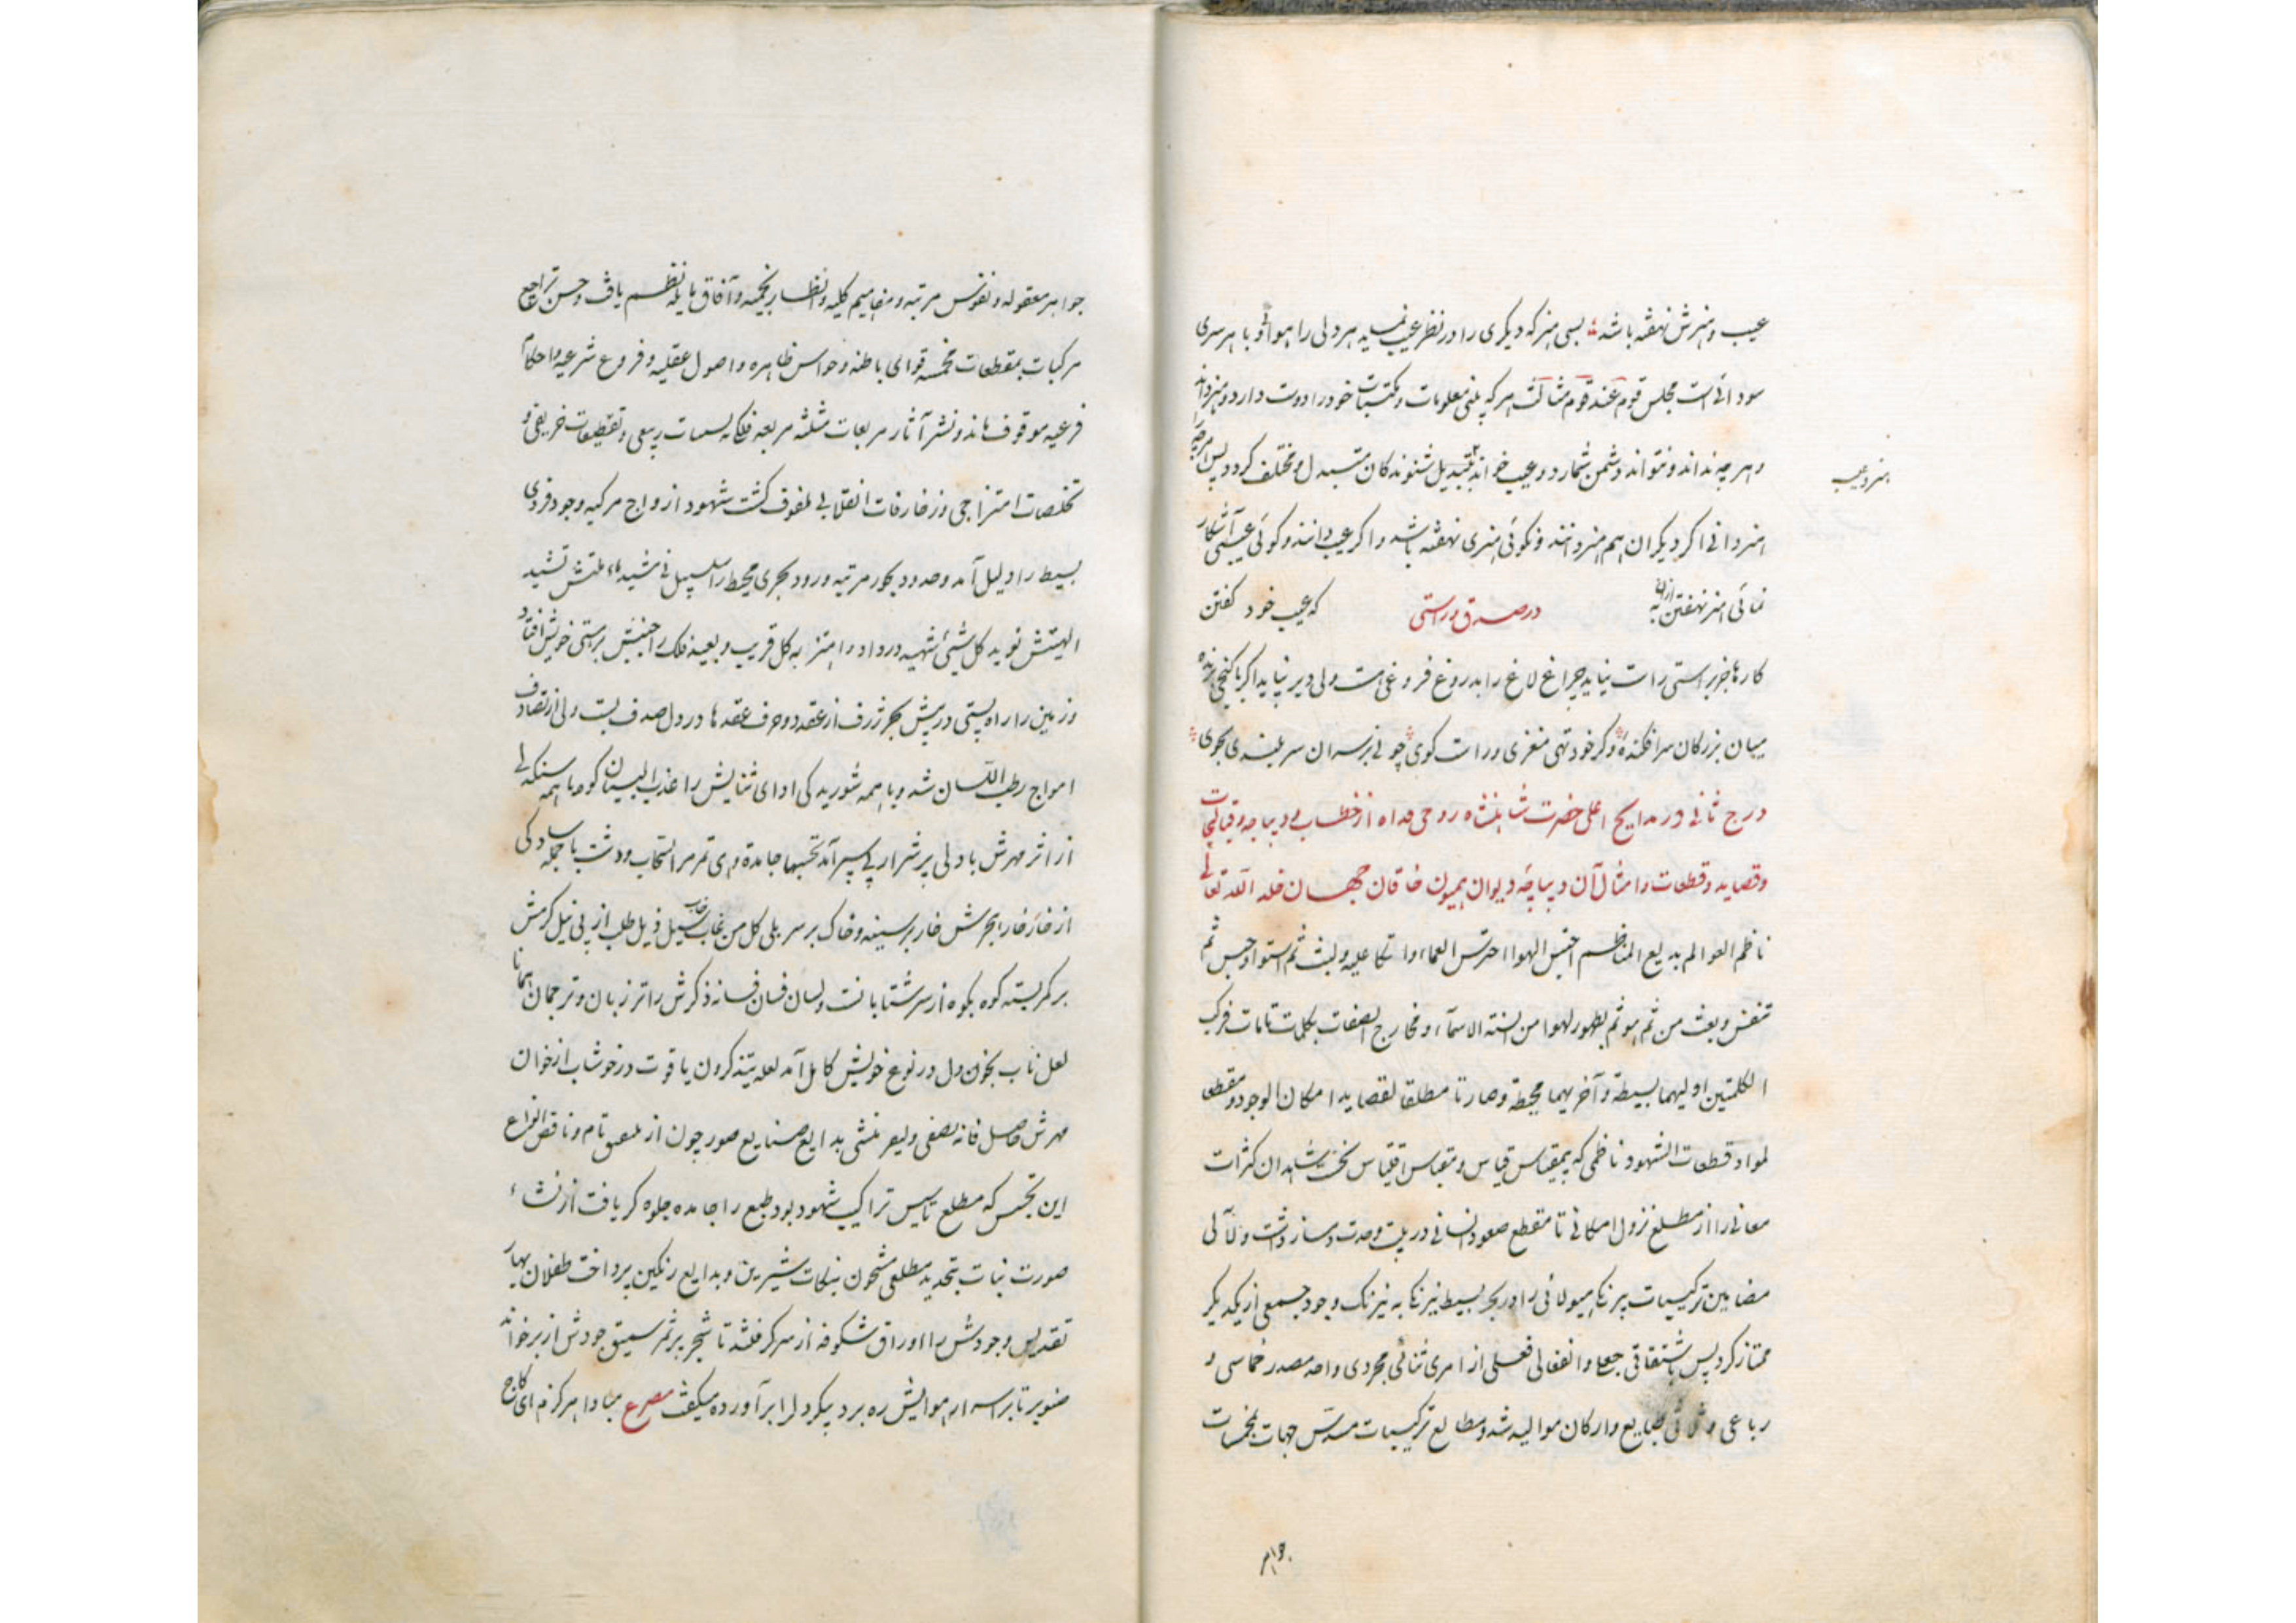 عیب و هنرش نهفته باشد بسی هنر که دیگری را در نظر عیب نماید هر دلی را هوائی و با هر سری
سودائی است مجلس قوم عند قوم هر که پلنی معلومات و مکتسبات خود را دوست دارد و هنر داند
و هر چه نداند و نتواند دشمن شمارد و عیب خواند تبدیل شنوندگان متبدل و مختلف گردد پس هر چه
هنر و عیب
هنر دانی اگر دیگران هم هنر دانند و نگوئی هنری نهفته باشد و اگر عیب دانند و گوئی عیبی آشکار
نمائی هنر نهفتن به از آنکه که عیب خود گفتن
در صدق و راستی
کارها جز براستی راست نیاید چراغ لاغ را بدروغ فروغی هست ولی دیر نپاید اگر با کجی زنده
میان بزرگان سرافکنده وگر خود تهی مغزی و راست گوی چو نی بر سران سربلندی بجوی
درج ثانی در مدایح اعلی حضرت شاهنشاه روحی فداه از خطب و دیباجه و قبالجات
و قصاید و قطعات و امثال آن دیباچه دیوان همیون خاقان جهان خلد الله تعالی
ناظم العوالم بدیع المناظم احتبس الهوا احترس العماء و اتکا علیه ولبث ثم استوا و حبس ثم
تنفس و بعث من ثم هو ثم بظهور لهوا من السنة الاسماء و مخارج الصفات بکلمات تامات فرکب
الکلمتین اولیهما بسیطة و آخریهما محیطة و صارتا مطلقا لقصاید امکان الوجود و مقطعا
لمواد قطعات الشهود ناظمی که بمقیاس قیاس و مقباس اقتباس نخست شاهدان کثرات
معانی را از مطلع نزول امکانی تا مقطع صعود انسانی در بیت وحدت دمساز داشت و لآلی
مضامین ترکیبات پر نکا هیولائی را در بحر بسیط نیرنکا به نیرنک وجود جمعی از یکدیگر
ممتاز کرد پس باشتقاقی جعلی و انفعالی فعلی از امری ثنائی مجردی واحد مصدر خماسی و
رباعی و ثلاثی طبایع و ارکان موالید شد و مطالع ترکیبات مسدس جهات بمخمسات
جواهر
جواهر معقوله و نفوس مرتبه و مفاهیم کلیه و انظار نجمیه و آفاق بایله نظم یافت و حسن تراجیع
مرکبات بمقطعات مخمسه قوای باطنه و حواس ظاهره و اصول عقلیه و فروع شرعیه و احکام
فرعیه موقوف ماند و نشر آثار مربعات مثلثه مربعه فلکانه بسمات ربیعی و تقطیعات خریفی و
تخلصات امتزاجی و زخارفات انقلابی ملفوف کشت شهود ازواج مرکبه وجود فردی
بسیط را دلیل آمد و حدود بحور مرتبه ورود بحری محیط را سبیل
الهیتش نوید کل شیئ شهید در داد و امتزا به کل قریب و بعید فلک را جنبش بر هستی خویش افتاد
و زمین را راه پستی در پیش بحر ژرف از عقد دو حرف عقدها در دل صدف بست ولی از تصادف
امواج رطب اللسان شد و با همه شوریدگی ادای ثنایش را عذب البیان کوه با همه سنگدلی
از اثر مهرش با دلی پر شرار پی سپر آمد تحسبها جامدة وهی تمر مر السحاب و دشت با جمله سادگی
از خار خار بحرش خار بر سینه و خاک بر سر بلی کل من غاب خاب سیل ذیل طلب از پی نیل کرمش
بر کمر بسته کوه بکوه از سر شتابانست و لسان فسان فسانه ذکرش را تر زبان و ترجمان همانا
لعل ناب بخون دل در نوع خویش کامل آمد لعله یتذکرون یاقوت درخوشاب از خوان
مهرش حاصل فانه یصفی و لیعر منشی بدایع صنایع صور چون از ملصق تام و ناقص انواع
این تجنس که مطلع تاسیس تراکیب شهود بود طبع را جامده جلوه گر یافت از نشاء
صورت نبات بتجدید مطلعی مشحون بنکات شیرین و بدایع رنگین پرداخت طفلان بهار
تقدیس وجودش را اوراق شکوفه از سر گرفتند تا شجر بر ثمر سمیق جودش از بر خواند
صنوبر تا بر اسرار هوایش ره برد پیکر دلرا برآورده میگفت مصرع مبادا هرگزم ای کاج